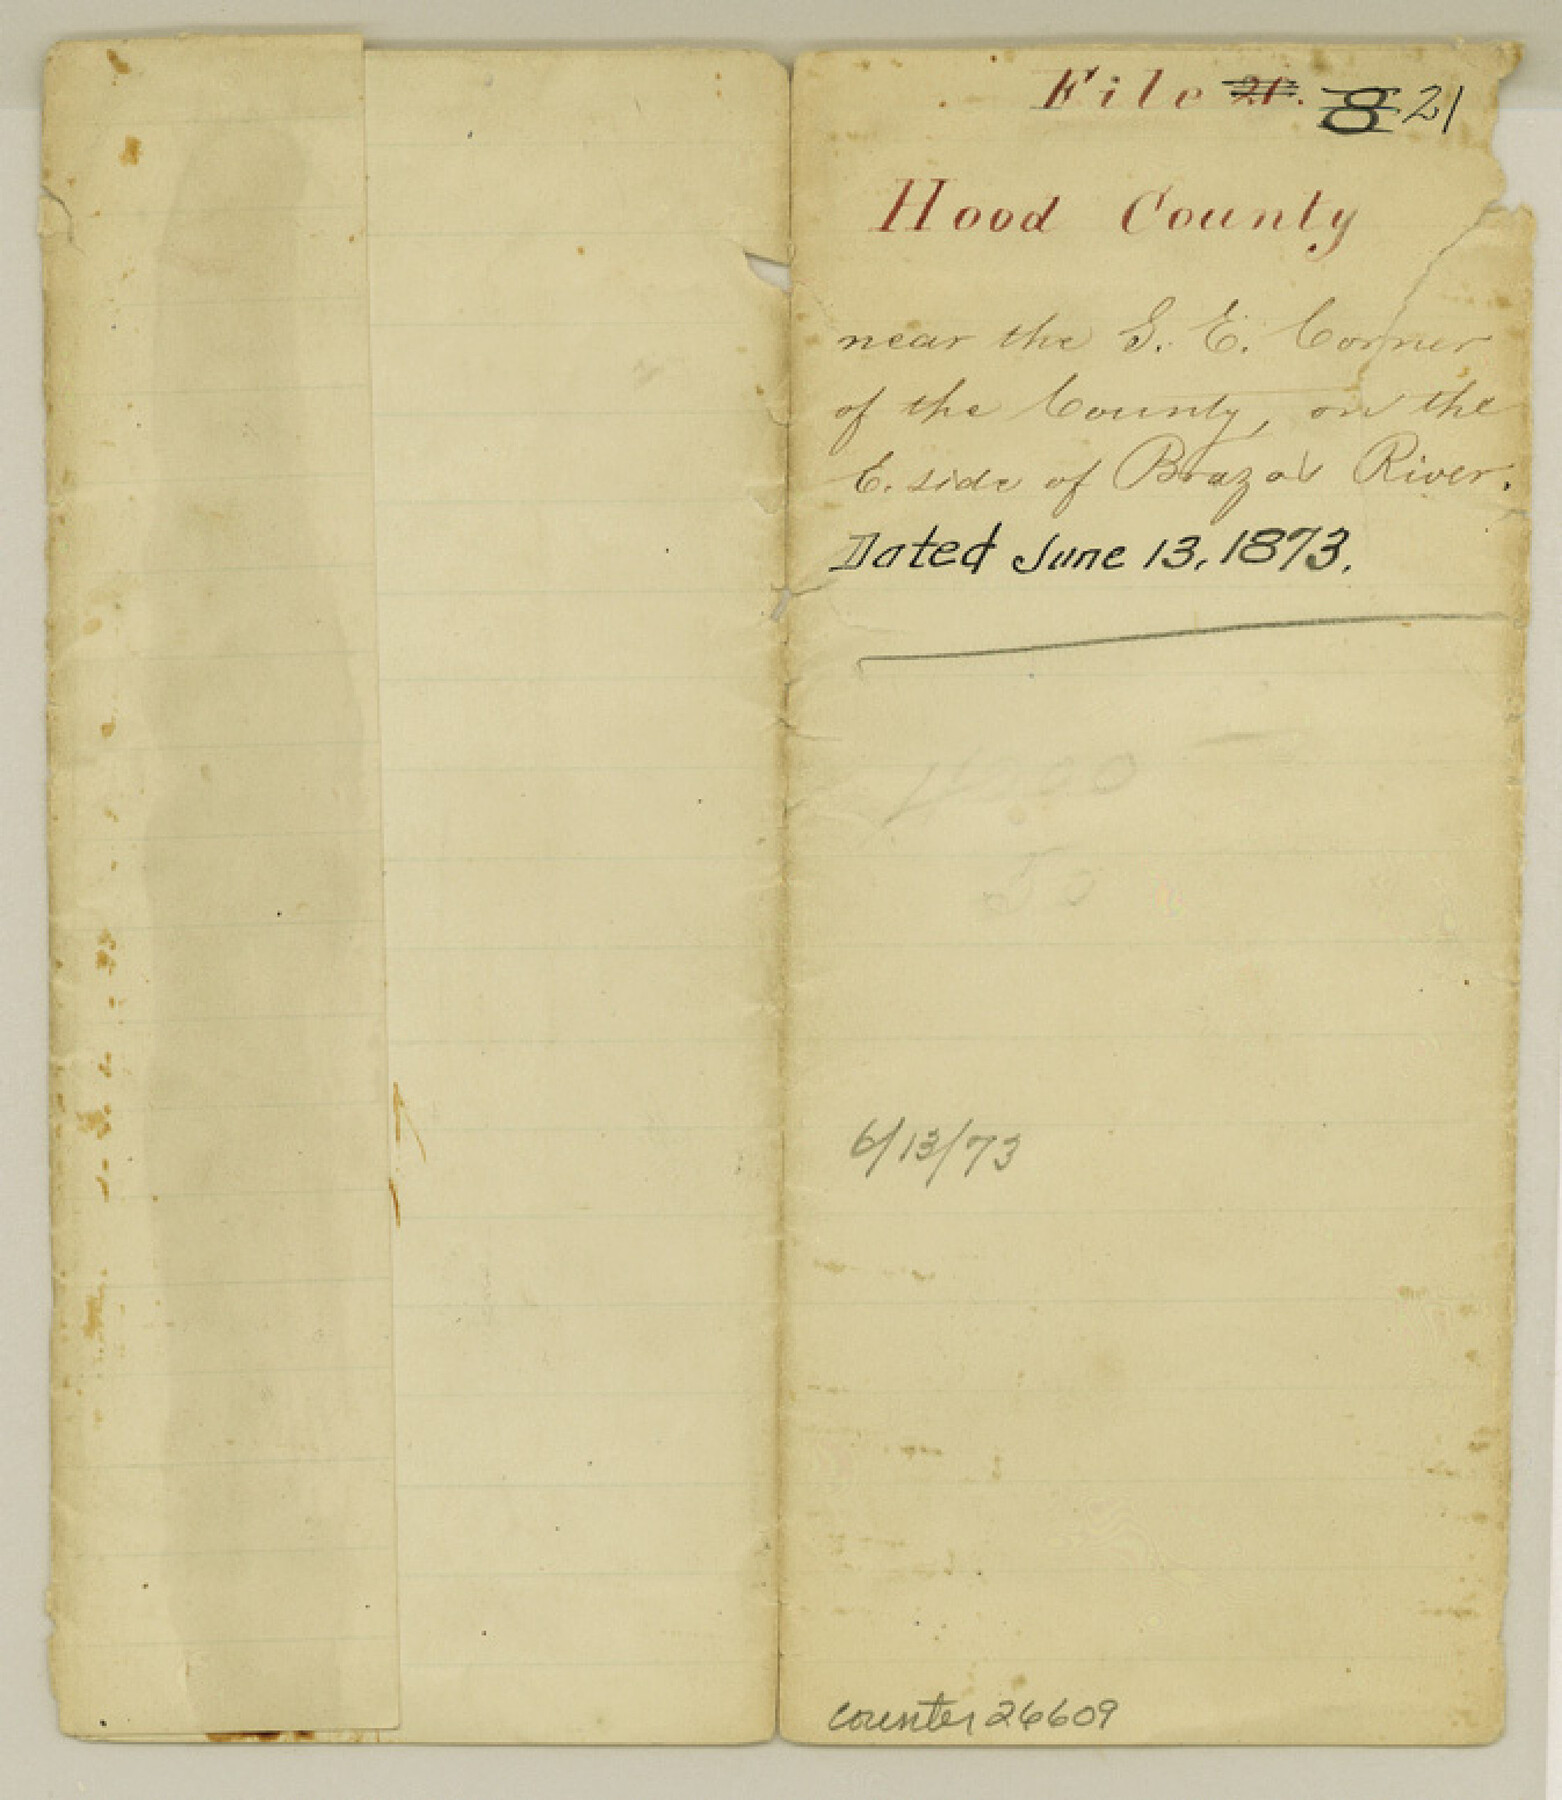 File 21. 8 21
Hood County
near the S. E. Corner
of the County, on the
E. side of Brazos River.
Dated June 13, 1873.
50
6/13/73
counter 26609